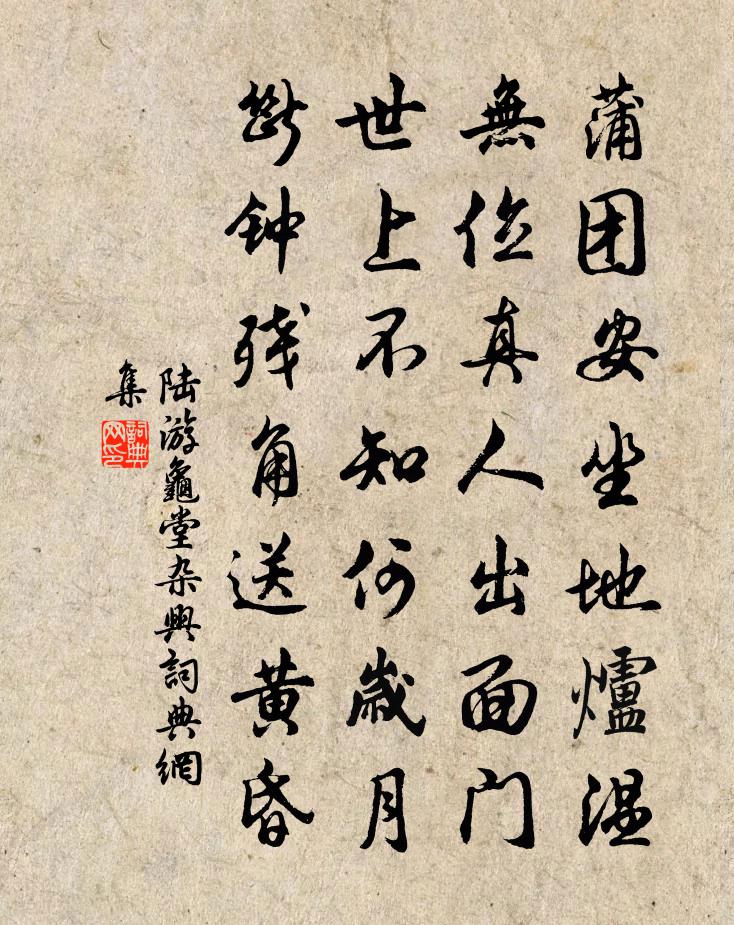 蒲团安坐地爐温
無位真人出面门
世上不知何歲月
断钟残角送黄昏
陆游龜堂杂興詞典網
集
詞典
网印